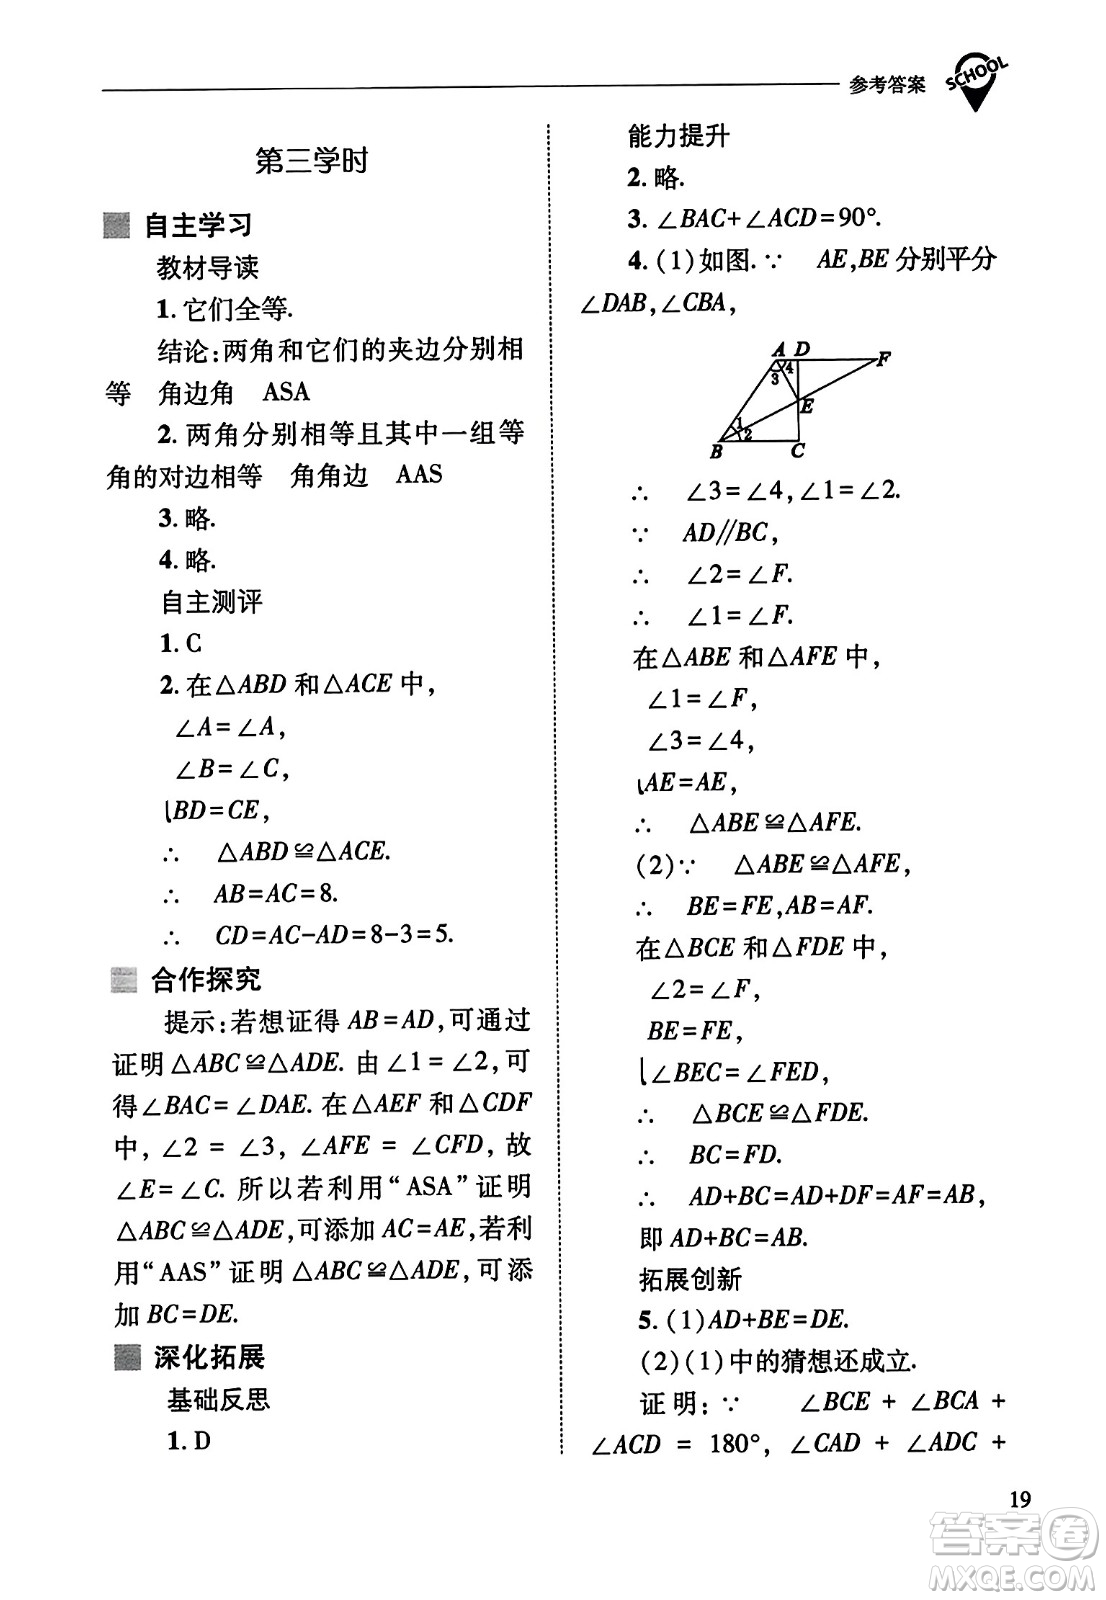 参考答案
SCHOOL
第三学时
自主学习
教材导读
1.它们全等.
结论:两角和它们的夹边分别相
等 角边角 ASA
2.两角分别相等且其中一组等
角的对边相等 角角边 AAS
3.略.
4.略.
自主测评
1.C
2.在△ABD 和△ACE 中,
∠A=∠A,
∠B=∠C,
BD=CE,
∴ △ABD≌△ACE.
∴ AB=AC=8.
∴ CD=AC-AD=8-3=5.
合作探究
提示:若想证得 AB=AD,可通过
证明△ABC≌△ADE. 由∠1=∠2,可
得∠BAC=∠DAE. 在△AEF 和△CDF
中, ∠2 = ∠3, ∠AFE = ∠CFD, 故
∠E=∠C. 所以若利用“ASA”证明
△ABC≌△ADE,可添加 AC=AE,若利
用“AAS”证明△ABC≌△ADE,可添
加 BC=DE.
深化拓展
基础反思
1.D
能力提升
2.略.
3.∠BAC+∠ACD=90°.
4.(1)如图.∵ AE,BE 分别平分
∠DAB,∠CBA,
A D F
3 4
E
1
2
B C
∴ ∠3=∠4,∠1=∠2.
∵ AD∥BC,
∴ ∠2=∠F.
∴ ∠1=∠F.
在△ABE 和△AFE 中,
∠1=∠F,
∠3=∠4,
AE=AE,
∴ △ABE≌△AFE.
(2)∵ △ABE≌△AFE,
∴ BE=FE,AB=AF.
在△BCE 和△FDE 中,
∠2=∠F,
BE=FE,
∠BEC=∠FED,
∴ △BCE≌△FDE.
∴ BC=FD.
∴ AD+BC=AD+DF=AF=AB,
即 AD+BC=AB.
拓展创新
5.(1)AD+BE=DE.
(2)(1)中的猜想还成立.
证明:∵ ∠BCE + ∠BCA +
∠ACD = 180°, ∠CAD + ∠ADC +
19
答案卷
MXQE.COM